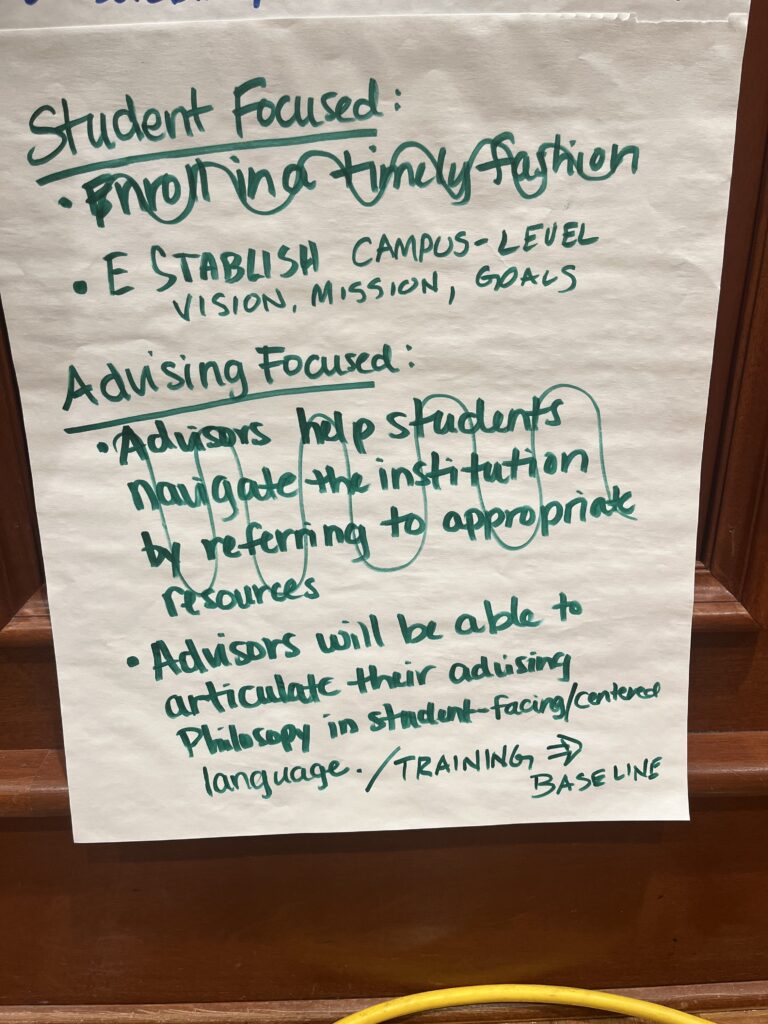 Student Focused:
• Enroll in a timely fashion
• ESTABLISH CAMPUS-LEVEL
VISION, MISSION, GOALS
Advising Focused:
• Advisors help students
navigate the institution
by referring to appropriate
resources
• Advisors will be able to
articulate their advising
Philosopy in student-facing/centered
language. / TRAINING ⇒
BASELINE